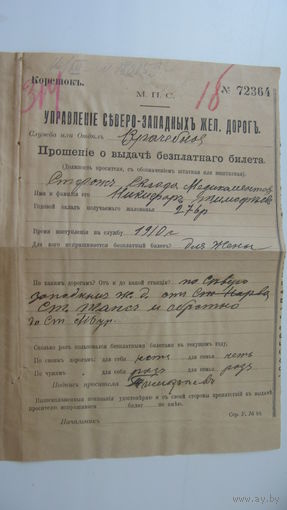 Корешокъ.
314
16
М. П. С.
№ 72364
УПРАВЛЕНІЕ СѢВЕРО-ЗАПАДНЫХЪ ЖЕЛ. ДОРОГЪ.
Служба или Отдѣлъ Врачебная
Прошеніе о выдачѣ безплатнаго билета.
(Должность просителя, съ обозначеніемъ штатная или внештатная).
Сторожъ склада Медикаментовъ
Имя и фамилія его Никифоръ Тимофѣевъ
Годовой окладъ получаемаго жалованья 276р
Время поступленія на службу. 1910 г
Для кого испрашивается безплатный билетъ для жены
По какимъ дорогамъ? Отъ и до какой станціи? по Сѣверо
западнымъ ж. д. отъ Ст. Нарва
Ст. Тапсъ и обратно
до Ст.
Сколько разъ пользовался безплатными билетами въ текущемъ году,
По своимъ дорогамъ: для себя нетъ для семьи нетъ
По чужимъ для себя разъ для семьи разъ
Подпись просителя Тимофѣевъ
Вышеизложенныя показанія удостовѣряю и съ своей стороны препятствій къ выдачѣ
просителю испрашиваемаго билет не имѣю.
Начальникъ
Сер. У. № 44
ay.by